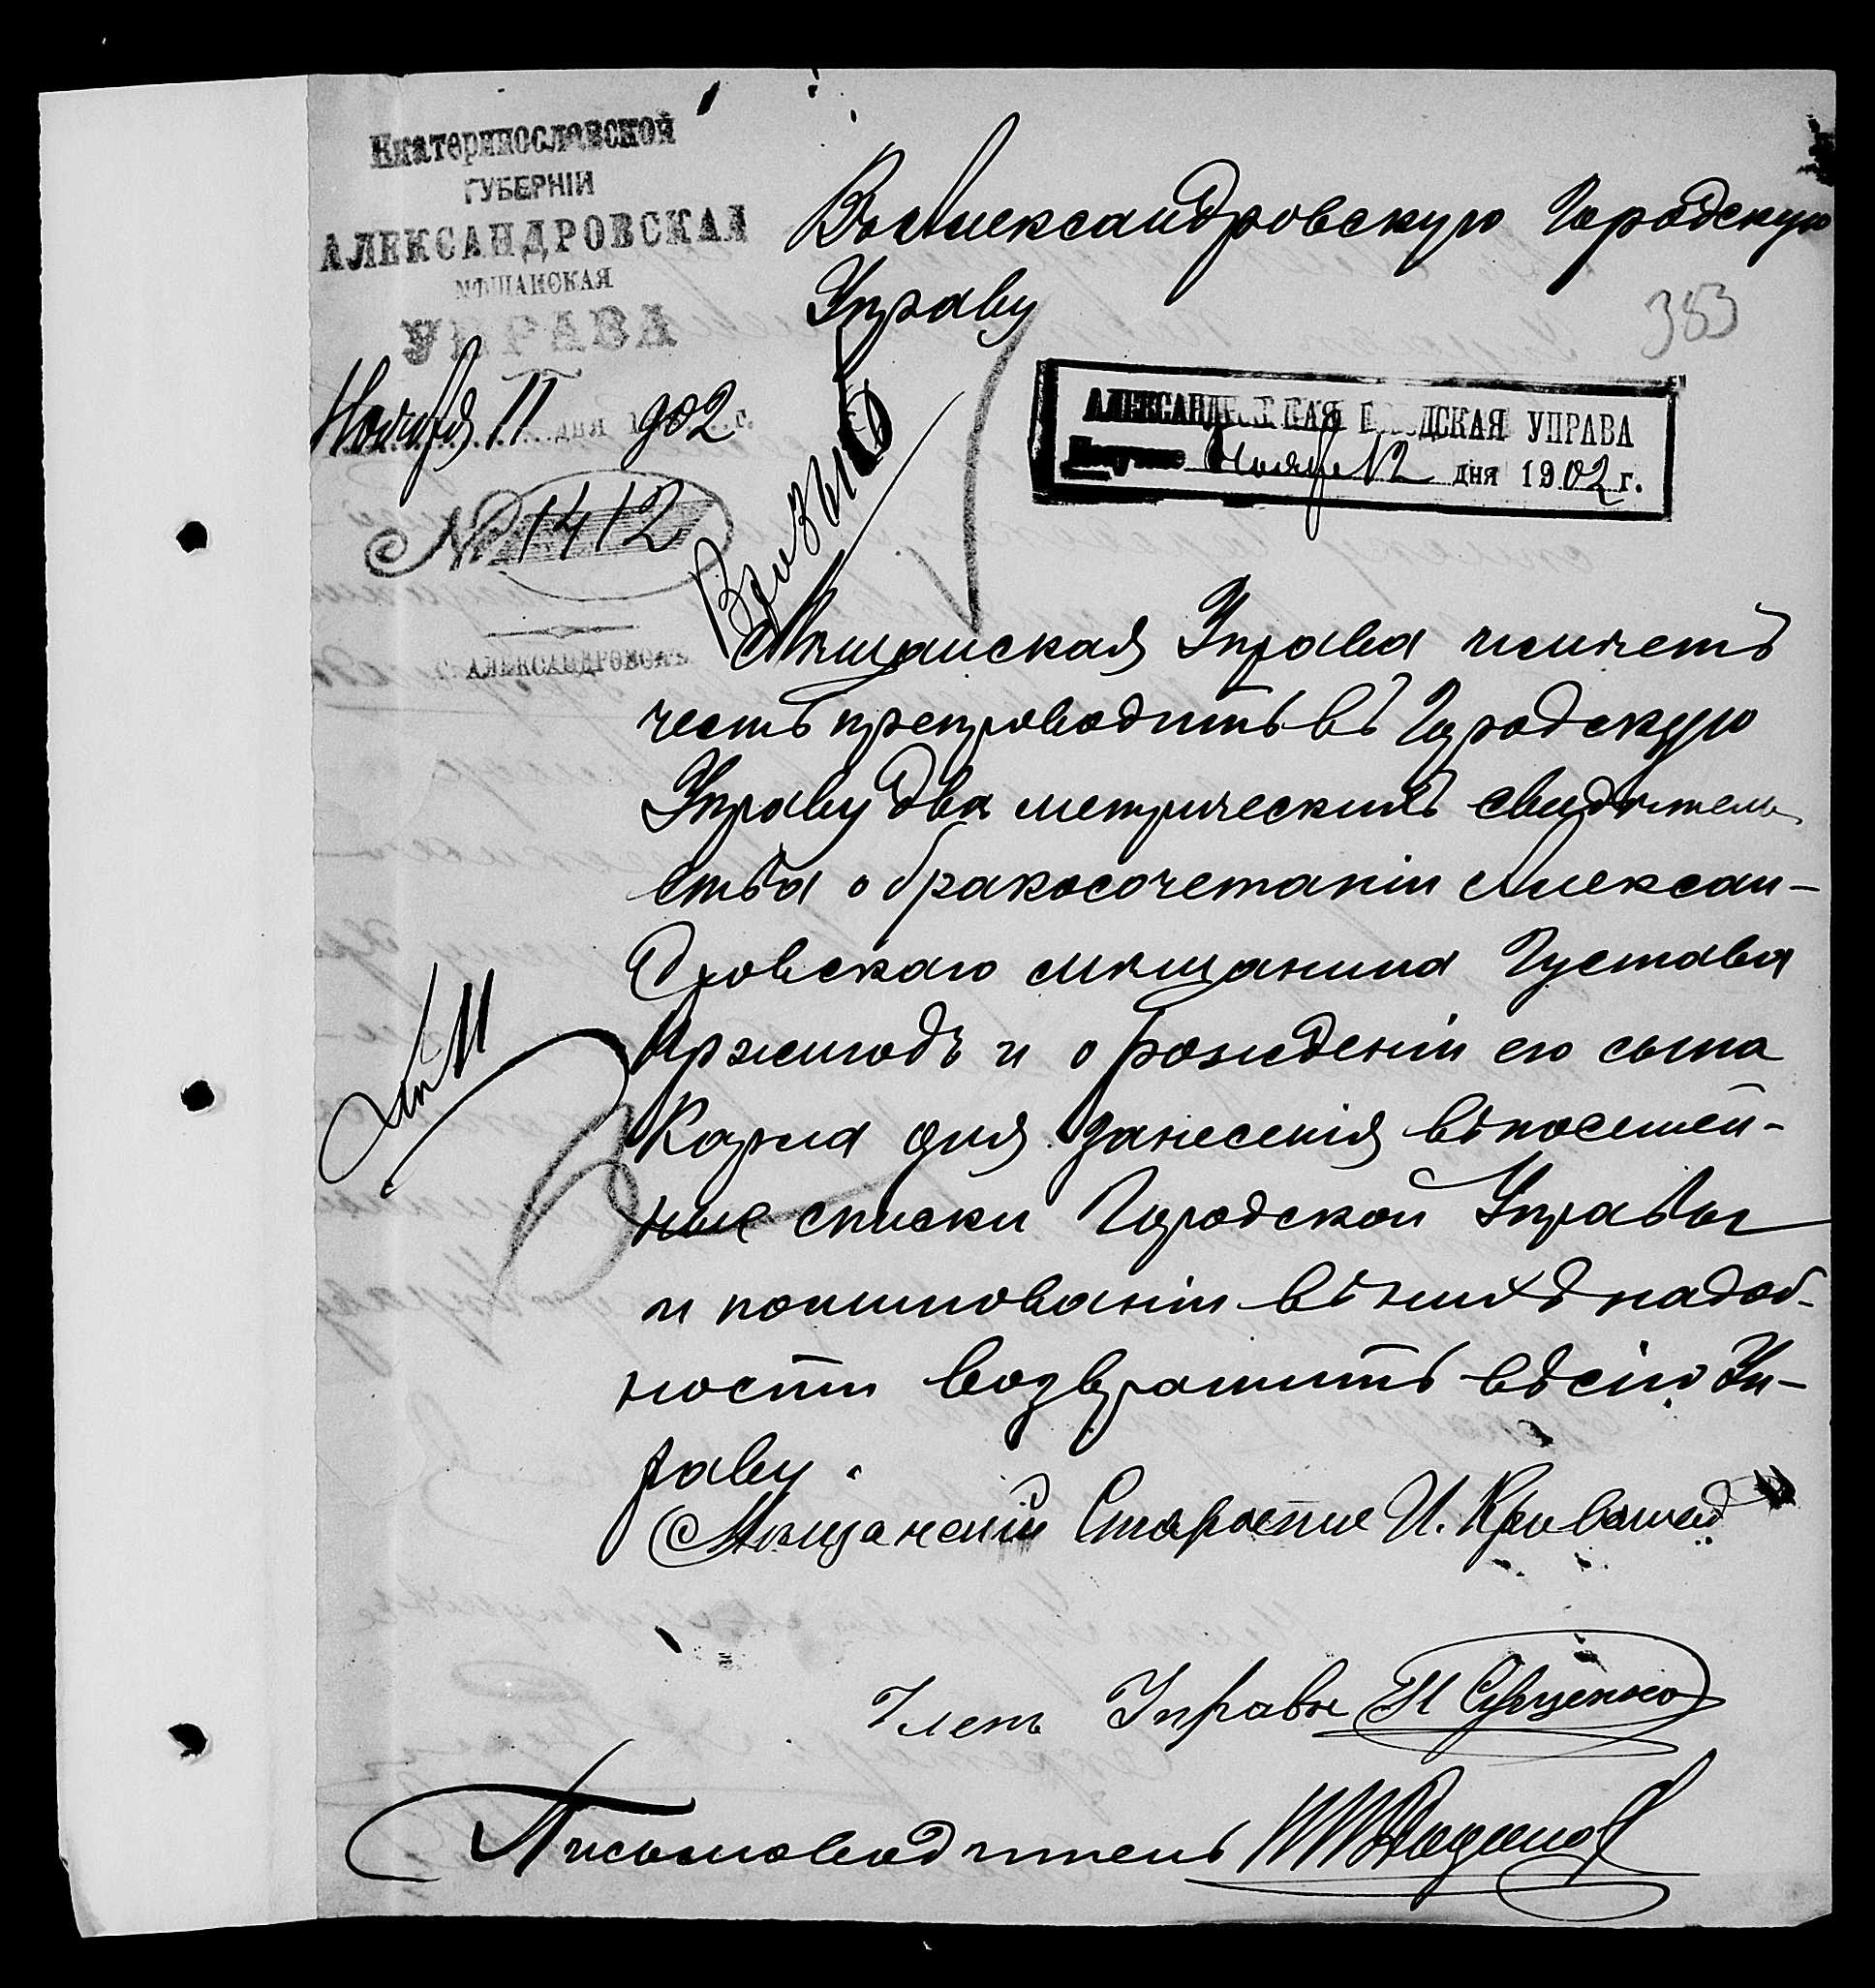 Екатеринославской
ГУБЕРНІИ
АЛЕКСАНДРОВСКАЯ
МѢЩАНСКАЯ
УПРАВА
Ноября 11 дня 1902 г.
№ 1412
Г. АЛЕКСАНДРОВСКЪ
Въ Александровскую Городскую
Управу
383
АЛЕКСАНДРОВСКАЯ ГОРОДСКАЯ УПРАВА
Получено Ноября 12 дня 1902 г.
Мѣщанская Управа имѣетъ
честь препроводить въ Городскую
Управу два метрическихъ свидѣтель
ства о бракосочетаніи Алексан-
дровскаго мѣщанина Густава
и о рожденіи его сына
Карла для занесенія въ посемей-
ные списки Городской Управы
и по минованіи въ нихъ надоб-
ности возвратить въ сію Уп-
раву.
Мѣщанскій Староста И.
Членъ Управы
Письмоводитель